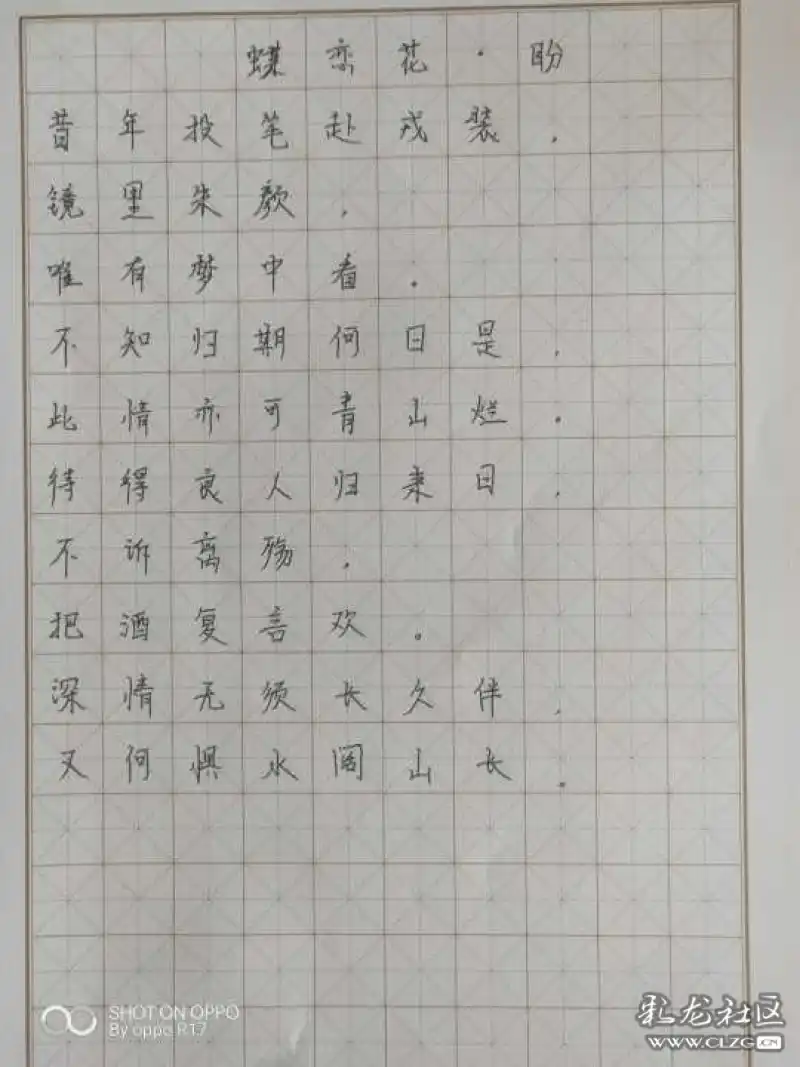 蝶恋花·盼
昔年投笔赴戎装，
镜里朱颜，
唯有梦中看。
不知归期何日是，
此情亦可青山烂。
待得良人归来日，
不诉离殇，
把酒复言欢。
深情无须长久伴，
又何惧水阔山长。
SHOT ON OPPO
By oppo R17
彩龙社区
WWW.CLZG.CN